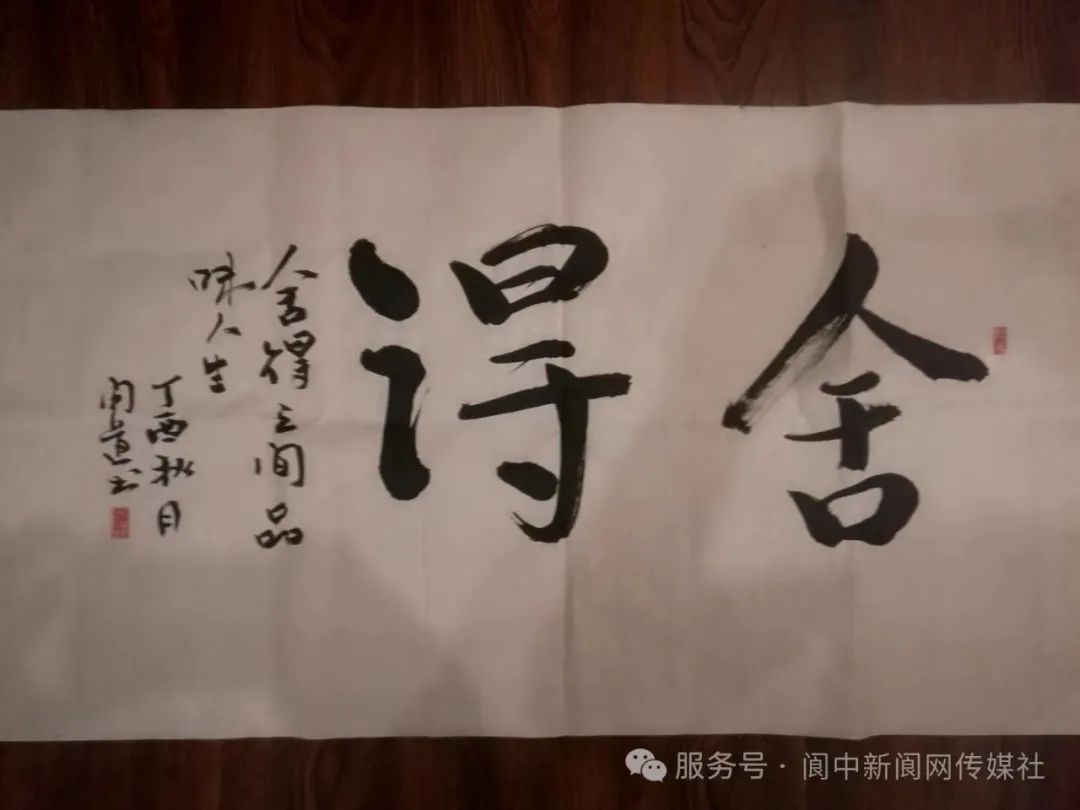 舍得
舍得之间品
味人生
丁酉秋月
问道书
服务号·阆中新阆网传媒社